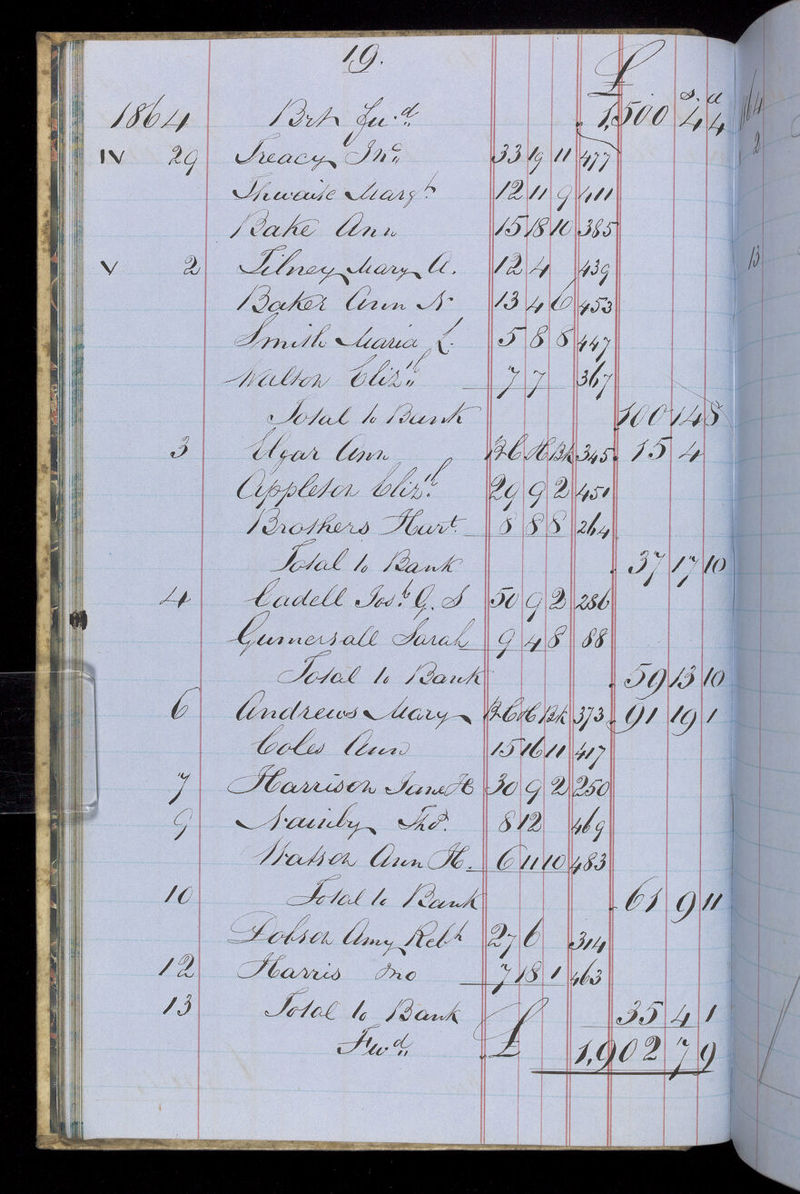 19.
£ s. d
1864 Brt fwd 1,500 4 4
IV 29 Treacy Jno 33 19 11 477
Thwaite Margt 12 11 9 411
Bake Ann 15 18 10 385
V 2 Tilney Mary A. 12 4 439
Baker Ann N 13 4 6 453
Smith Maria L. 5 8 8 447
Walton Elizth 7 7 367
Total to Bank 100 14 8
3 Elgar Ann B C H Bk 345 15 4
Appleton Elizth 29 9 2 451
Brothers Hart. 8 8 8 264
Total to Bank 37 17 10
4 Cadell Josh G. S 50 9 2 286
Gumersall Sarah 9 4 8 88
Total to Bank 59 13 10
6 Andrews Mary B C H Bk 373 91 19 1
Coles Ann 15 16 11 417
7 Harrison Jane H 30 9 2 250
9 Nainby Thos. 8 12 469
Watson Ann H. 6 11 10 483
10 Total to Bank 61 9 11
Dobson Amy Rebh 27 6 314
12 Harris Jno 7 18 1 463
13 Total to Bank 35 4 1
Fwd £ 1,902 7 9